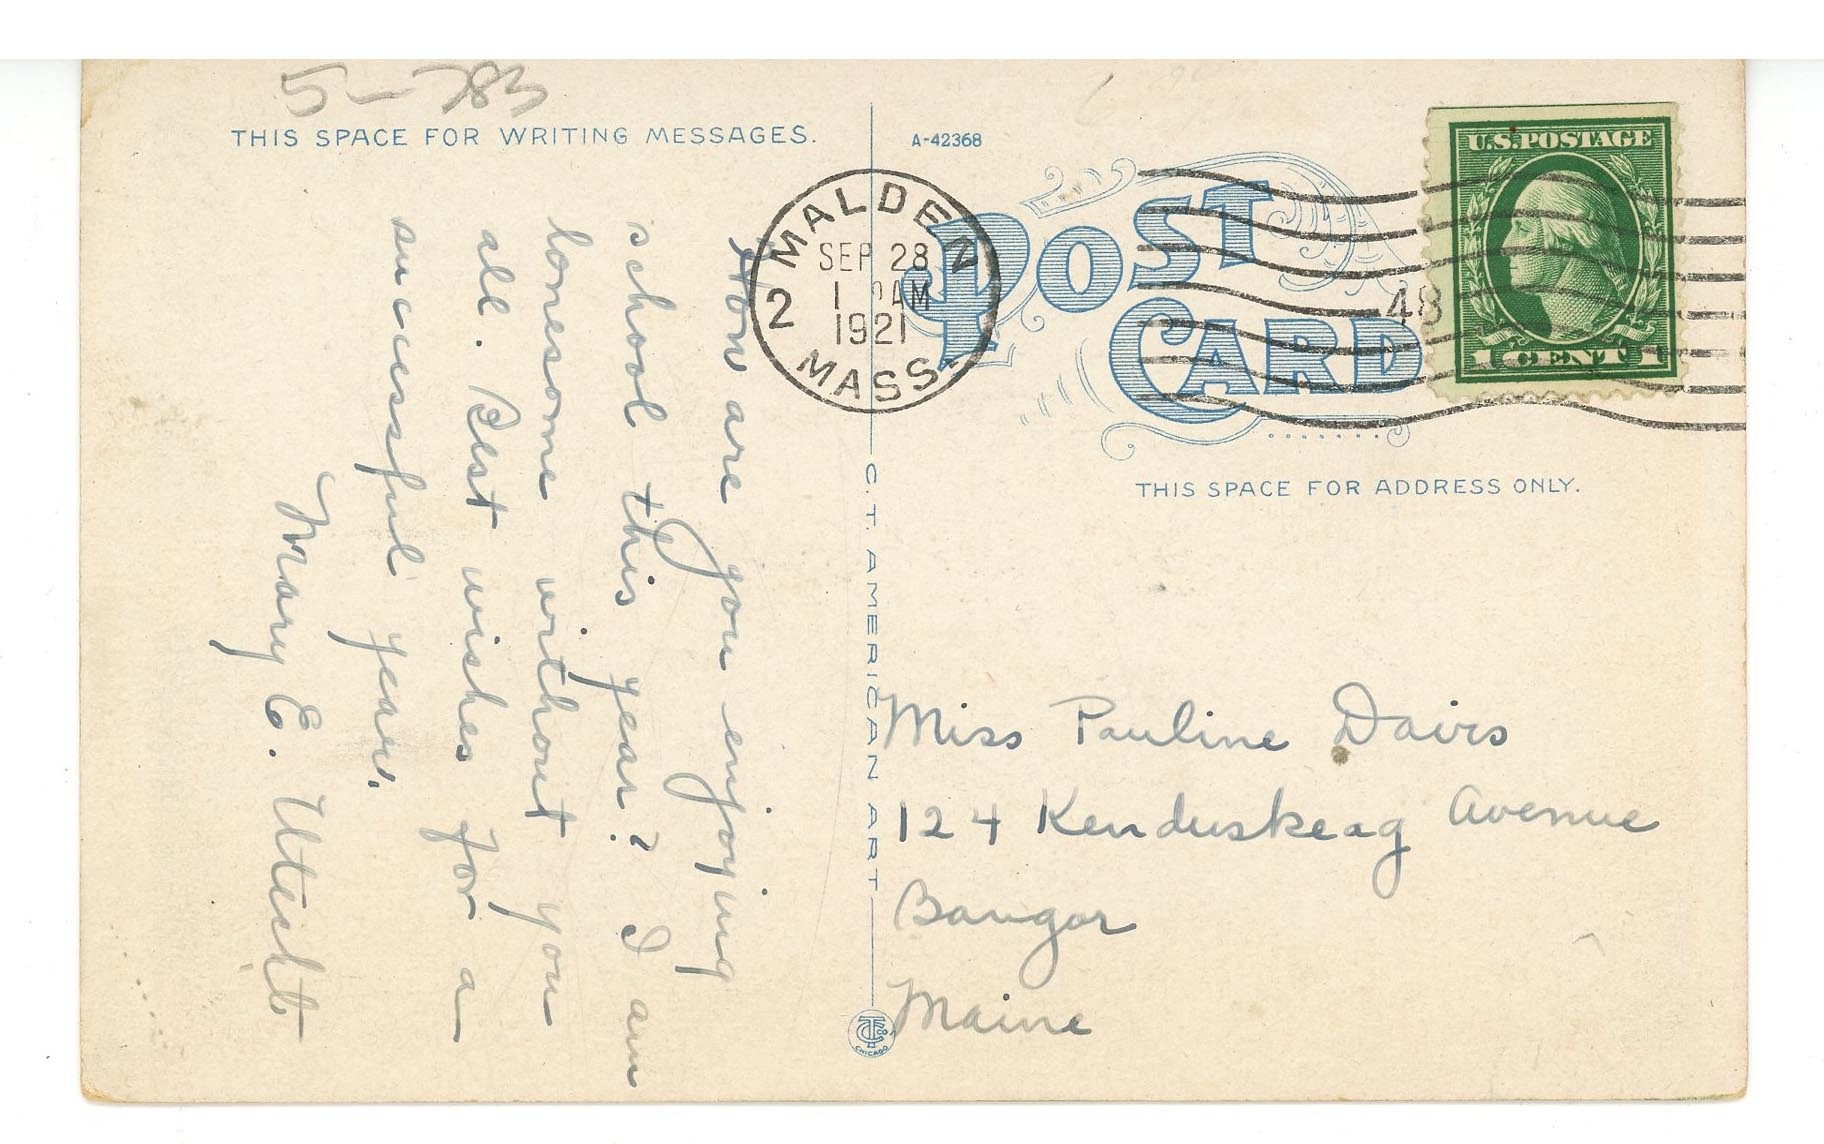 5-783
THIS SPACE FOR WRITING MESSAGES.
A-42368
MALDEN
SEP 28
1921
2
MASS.
POST
CARD
48
U.S. POSTAGE
1 CENT 1
THIS SPACE FOR ADDRESS ONLY.
How are you enjoying
school this year? I am
lonesome without you
all. Best wishes for a
successful year.
Mary E. Utecht
C. T. AMERICAN ART
CHICAGO
Miss Pauline Davis
124 Kenduskeag Avenue
Bangor
Maine